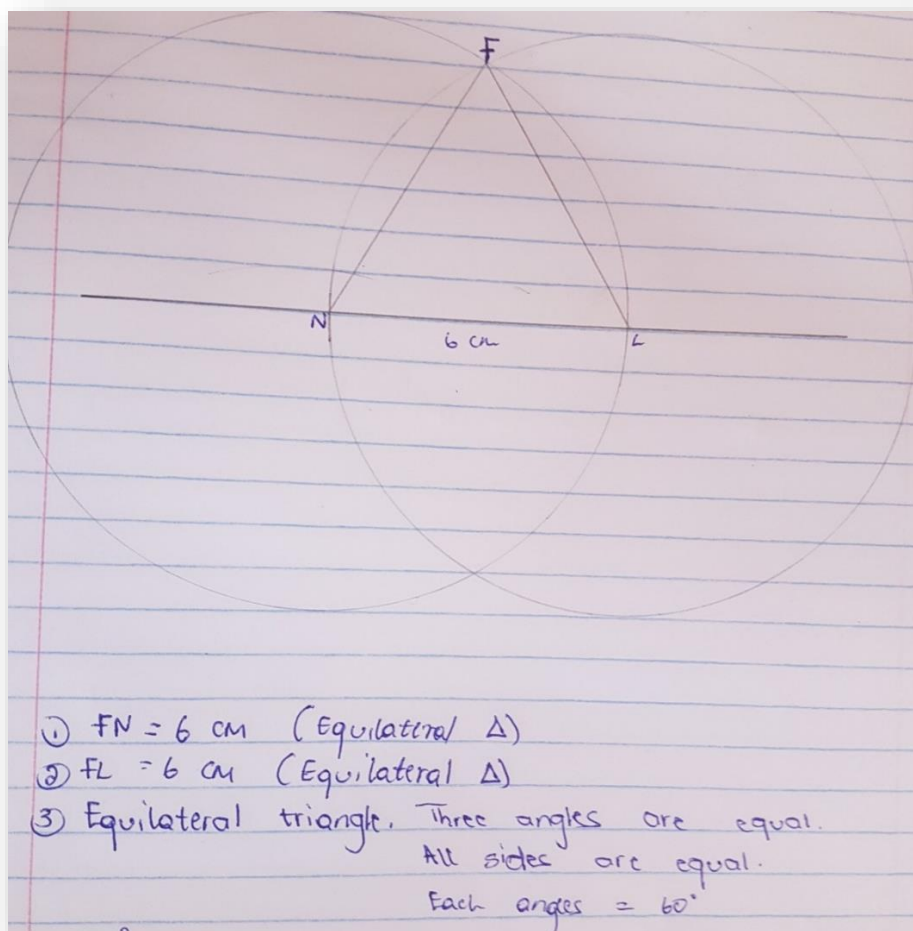 F
N
6 cm
L
① FN = 6 cm (Equilateral Δ)
② FL = 6 cm (Equilateral Δ)
③ Equilateral triangle. Three angles are equal.
All sides are equal.
Each anges = 60°